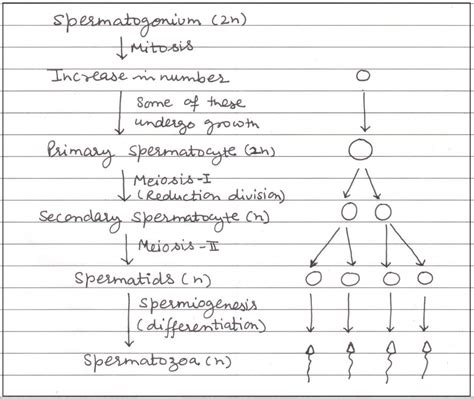 Spermatogonium (2n)
Mitosis
Increase in number
Some of these
undergo growth
Primary Spermatocyte (2n)
Meiosis-I
(Reduction division)
Secondary Spermatocyte (n)
Meiosis-II
Spermatids (n)
Spermiogenesis
(differentiation)
Spermatozoa (n)